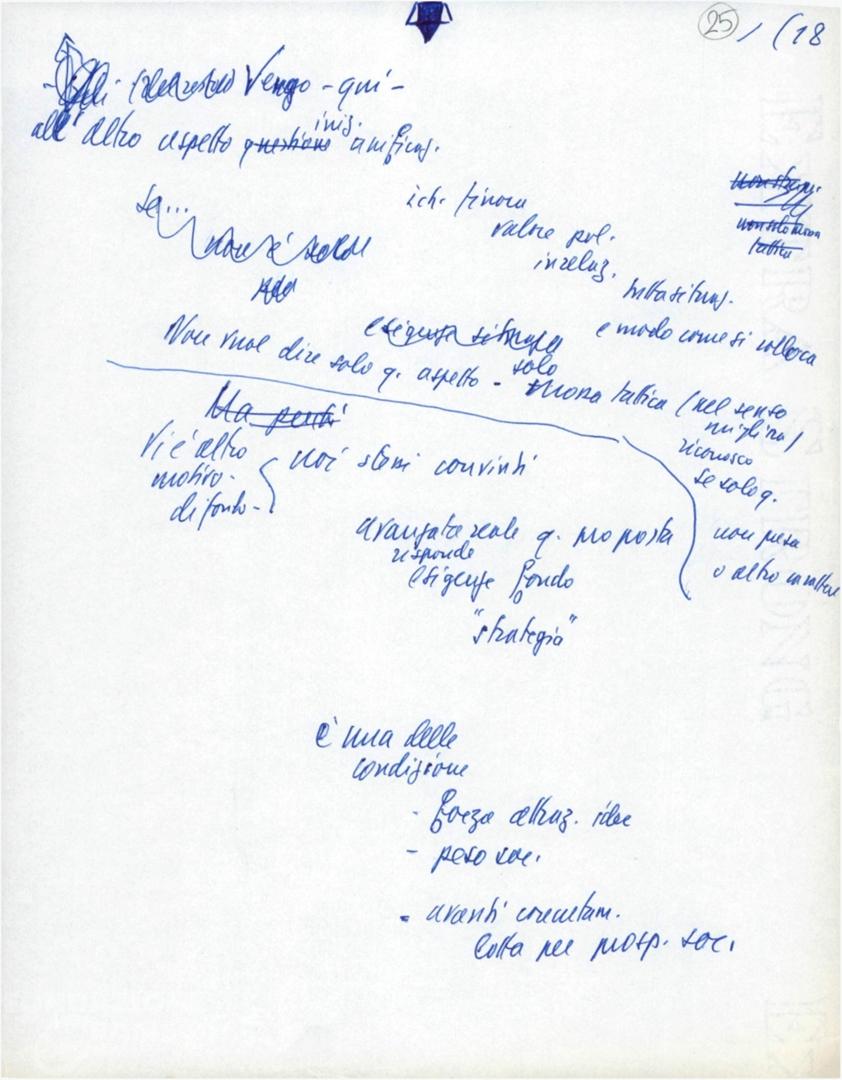 25 / (18
Vengo - qui -
iniz.
all'altro aspetto questione unificaz.
se...
ich. finora
valore pol.
non è solo
tutta situaz.
e modo come si colloca
esigenza
Non vuol dire solo q. aspetto - solo
mossa tattica (nel senso
migliore)
riconosco
se solo q.
non pesa
o altro carattere
Ma perché
Vi è altro
motivo.
di fondo -
noi stessi convinti
avanzata reale q. proposta
risponde
esigenze fondo
"strategia"
è una delle
condizione
- forza attraz. idee
- peso soc.
- avanti concretam.
lotta per prosp. soc.